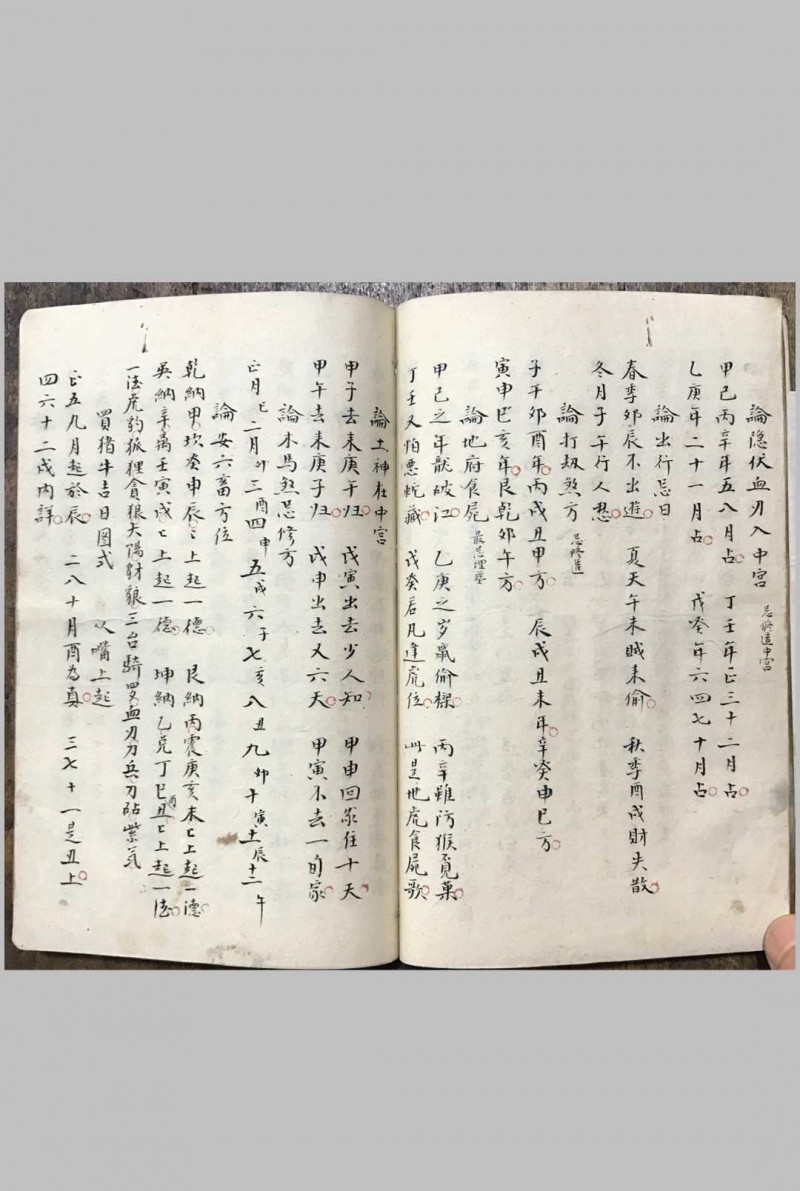 論隐伏血刃入中宮 忌修造中宮
甲己丙辛年五八月占 丁壬年正三十二月占
乙庚年二十一月占 戊癸年六四七十月占
論出行忌日
春季卯辰不出遊 夏天午未賊来偷 秋季酉戌財失散
冬月子午行人愁
論打刼煞方 忌修造
子午卯酉年丙戌丑甲方 辰戌丑未年辛癸申巳方
寅申巳亥年艮乾卯午方
論地府食屍 最忌埋塟
甲己之年龍破江 乙庚之岁鼠偷樑 丙辛雖防猴覓菓
丁壬又怕悪蛇藏 戊癸若凡逢虎位 此是地虎食屍歌
論土神在中宮
甲子去来庚午归 戊寅出去少人知 甲申回家住十天
甲午去来庚子归 戊申出去又六天 甲寅不去一旬家
論木馬煞忌修方
正月巳二月卯三酉四申五戌六子七亥八丑九卯十寅十一辰十二午
論安六畜方位
乾納甲坎癸申辰辰上起一德 艮納丙震庚亥未亡上起一德
巽納辛离壬寅戌亡上起一德 坤納乙兑丁巳丑酉亡上起一德
一德虎豹狐狸貪狼太陽豺狼三台騎罗血刃刀兵刀砧紫氣
買猪牛吉日图式 从嘴上起
正五九月起於辰 二八十月酉為真 三七十一是丑上
四六十二戌内詳